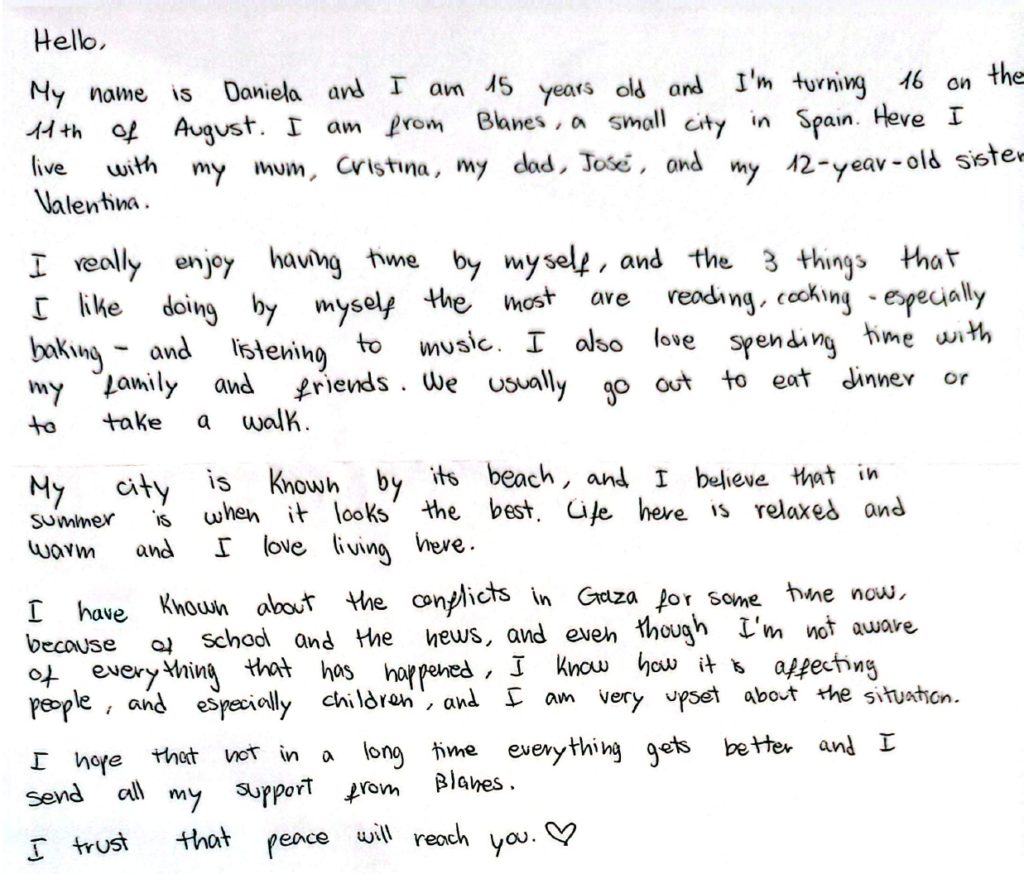 Hello,
My name is Daniela and I am 15 years old and I'm turning 16 on the
11th of August. I am from Blanes, a small city in Spain. Here I
live with my mum, Cristina, my dad, José, and my 12-year-old sister
Valentina.
I really enjoy having time by myself, and the 3 things that
I like doing by myself the most are reading, cooking - especially
baking - and listening to music. I also love spending time with
my family and friends. We usually go out to eat dinner or
to take a walk.
My city is known by its beach, and I believe that in
summer is when it looks the best. Life here is relaxed and
warm and I love living here.
I have known about the conflicts in Gaza for some time now,
because of school and the news, and even though I'm not aware
of everything that has happened, I know how it is affecting
people, and especially children, and I am very upset about the situation.
I hope that not in a long time everything gets better and I
send all my support from Blanes.
I trust that peace will reach you. ♡